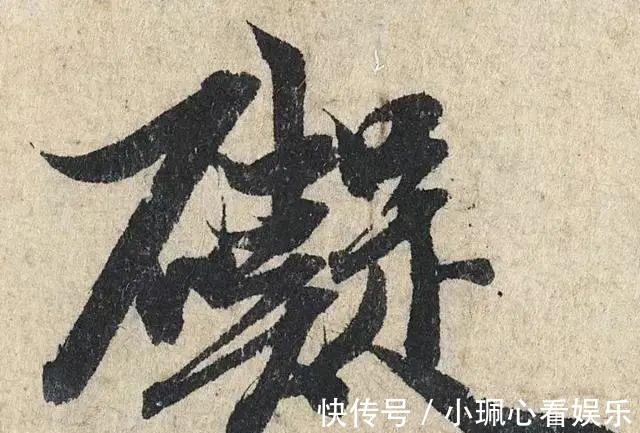 礙
快传号 / 小珮心看娱乐